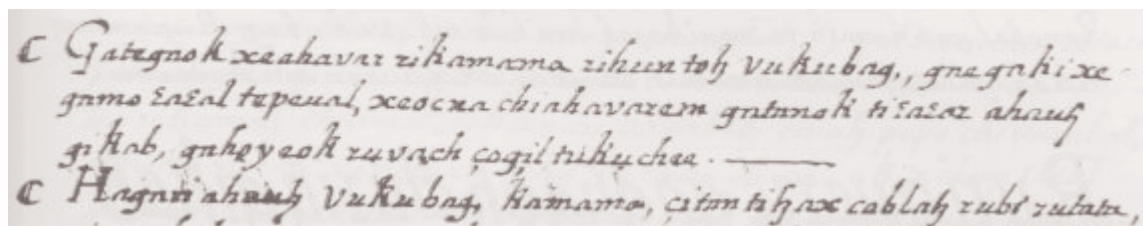 C Gategnok xeahavar rikamama rihuntoh vukubag,, gaegaki xe
gamo ɛaɛal tepeual, xeocna chiahavarem gatanok tiɛaɛar ahauh
gikab, gahoyeok ruvach çogil tukuchee. —
C Hagari ahauh vukubag, kamama, çitan tihax cablah rubi rutata,